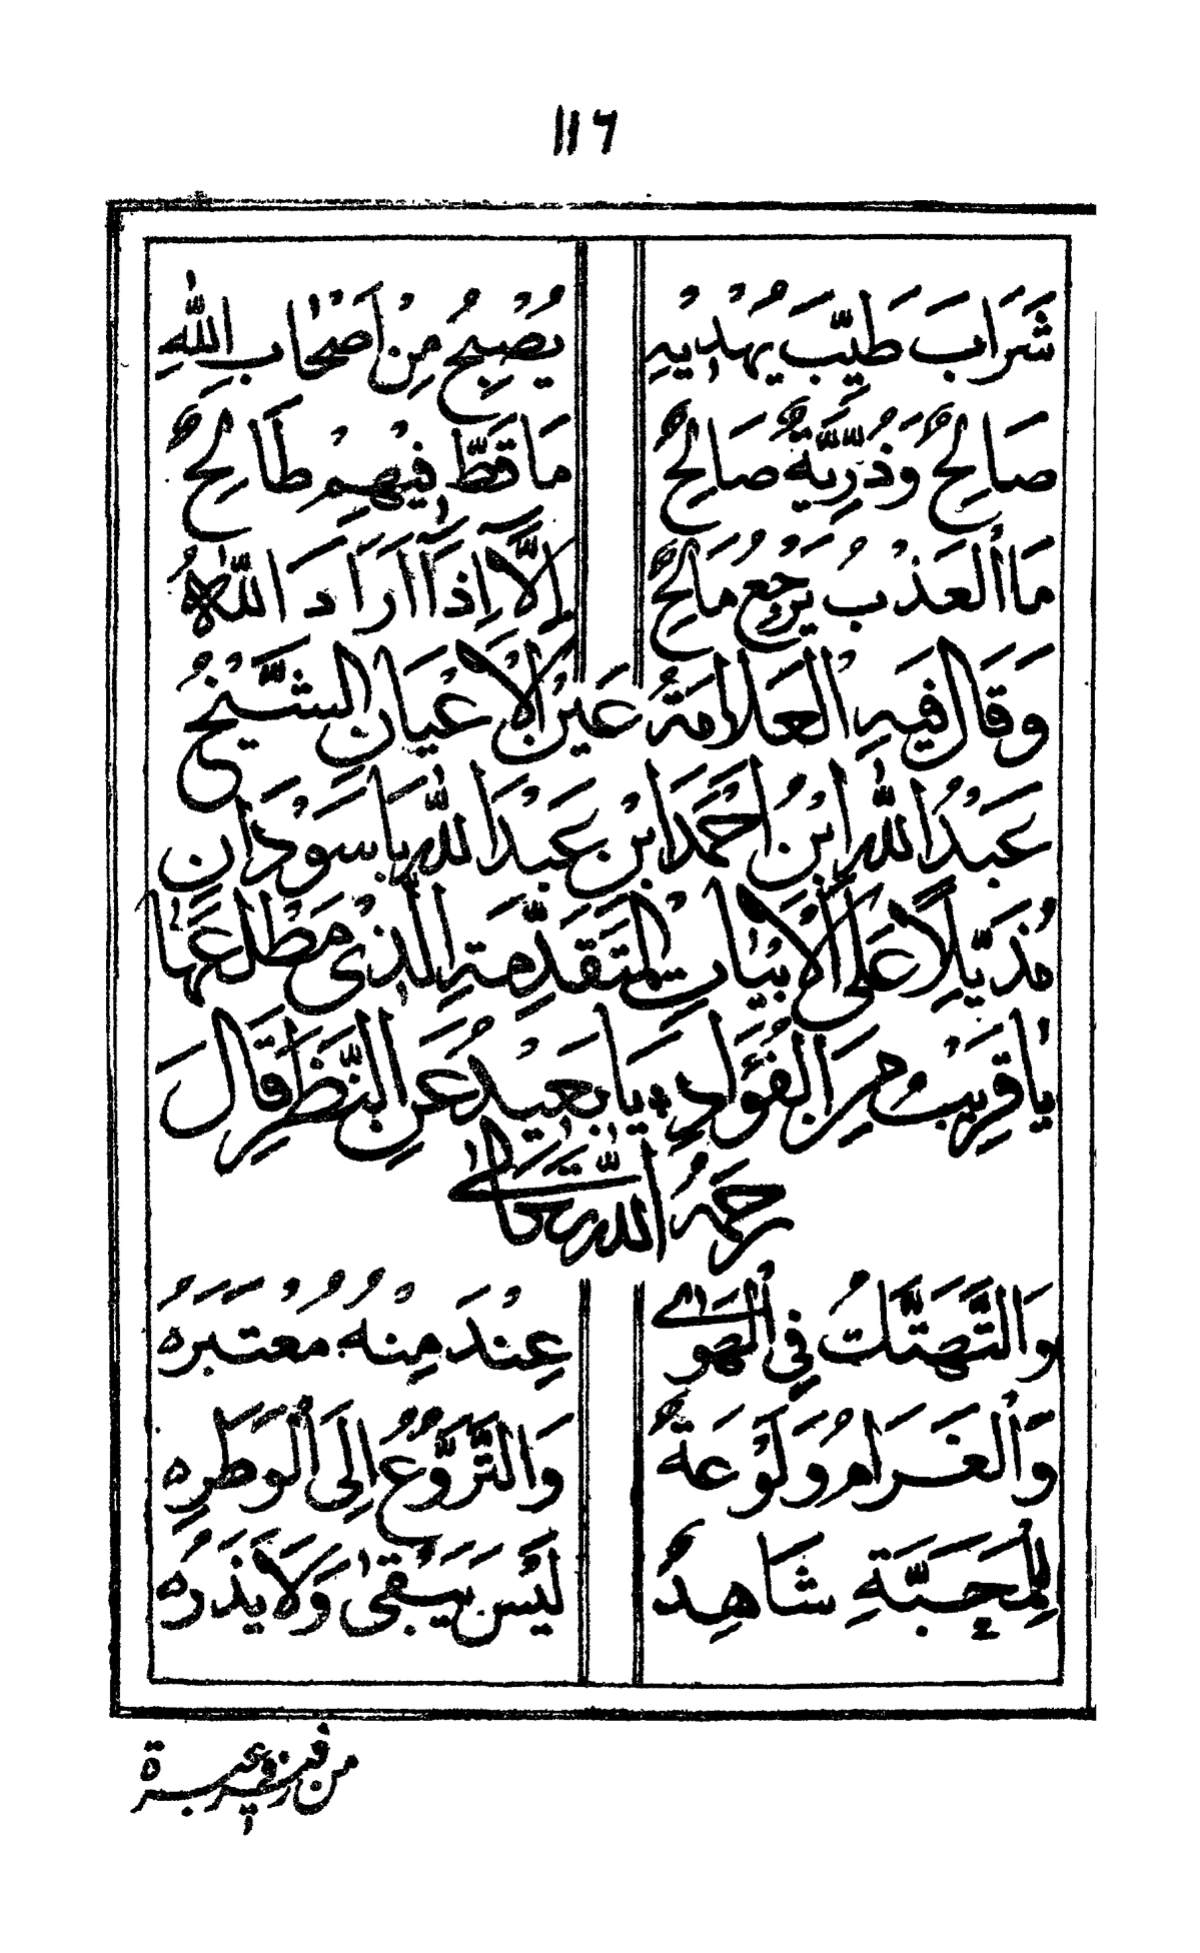 ١١٦
شَرَابَ طَيِّبَ يُهْدِيهِ يُصْبِحُ مِنْ أَصْحَابِ اللّٰهِ
صَالِحٌ وَذُرِّيَّةٌ صَالِحٌ مَا قَطَّ فِيْهِمْ طَالِحٌ
مَا الْعَذْبُ يَرْجِعُ مَالِحٌ إِلَّا إِذَا أَرَادَ اللّٰهُ
وَقَالَ فِيهِ الْعَلَّامَةُ عَيْنُ الْأَعْيَانِ الشَّيْخُ
عَبْدُ اللّٰهِ ابْنُ أَحْمَدَ ابْنِ عَبْدِ اللّٰهِ بَاسَوْدَان
مُذَيِّلًا عَلَى الْأَبْيَاتِ الْمُتَقَدِّمَةِ الَّذِي مَطْلَعُهَا
يَا قَرِيْبُ مِنَ الْفُؤَادِ ؞ يَا بَعِيْدُ عَنِ النَّظَرِ قَالَ
رَحِمَهُ اللّٰهُ تَعَالَى
وَالتَّهَتُّكُ فِي الْهَوَى عِنْدَ مِنْهُ مُعْتَبَرَهُ
وَالْغَرَامُ وَلَوْعَةٌ وَالنُّزُوْعُ إِلَى الْوَطَرِهِ
لِلْمَحَبَّةِ شَاهِدٌ لَيْسَ يَبْقَى وَلَا يَذَرُهُ
من